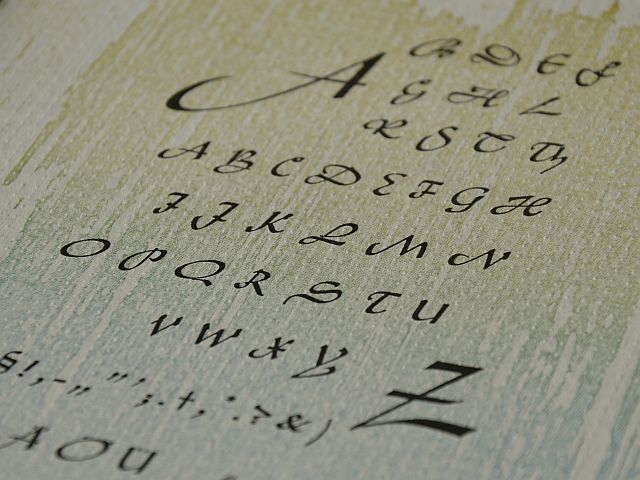 A B D E F
G H L
R S T Th
A B C D E F G H
I J K L M N
O P Q R S T U
V W X Y Z
§!‚-„ ”’;.+,·:>&)
A O U